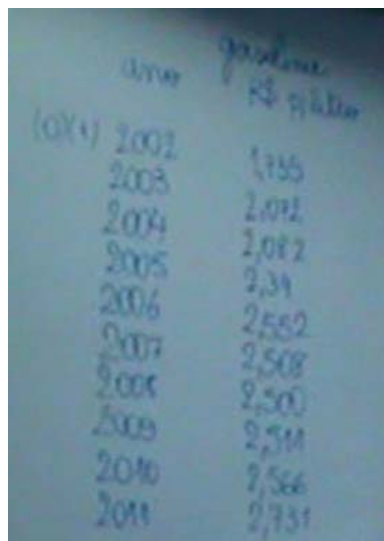 ano gasolina
R$ p/litro
(0)(1) 2002 1,735
2003 2,072
2004 2,082
2005 2,34
2006 2,552
2007 2,508
2008 2,500
2009 2,511
2010 2,566
2011 2,731